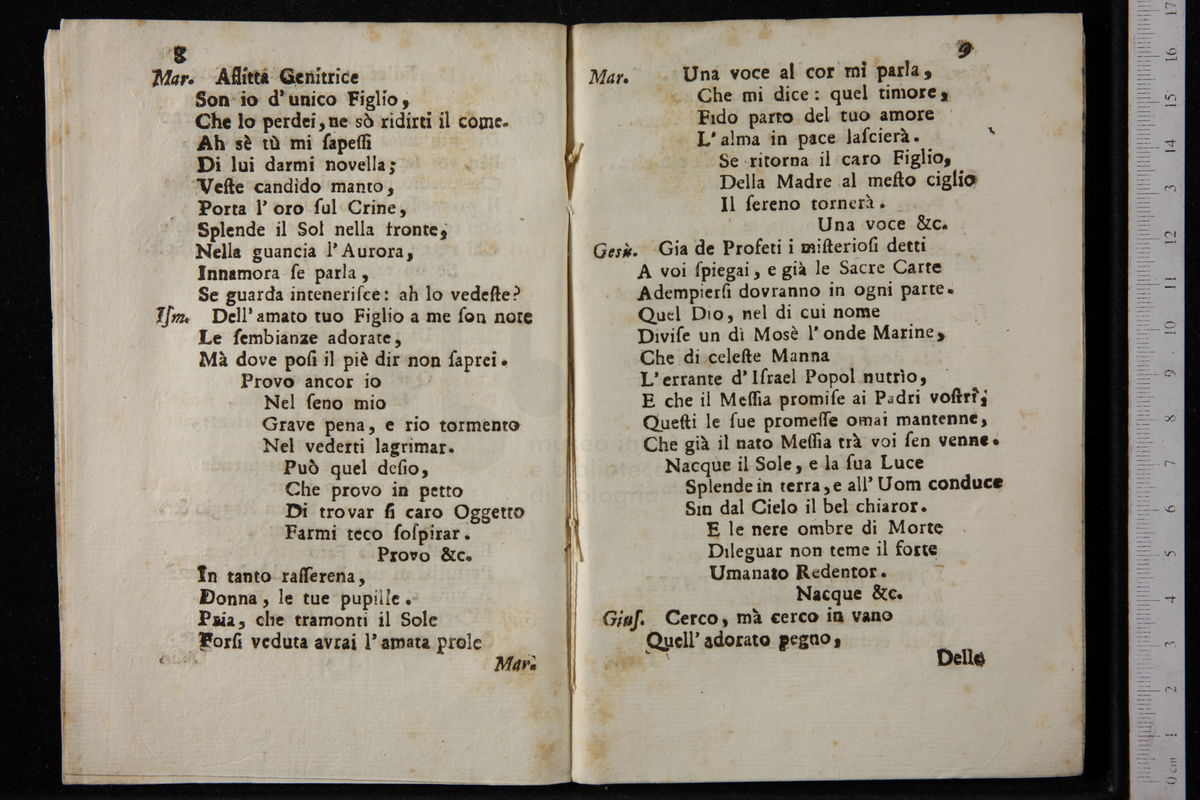 8
Mar. Aflitta Genitrice
Son io d'unico Figlio,
Che lo perdei, ne sò ridirti il come.
Ah sè tù mi ſapeſſi
Di lui darmi novella;
Veſte candido manto,
Porta l'oro ſul Crine,
Splende il Sol nella fronte,
Nella guancia l'Aurora,
Innamora ſe parla,
Se guarda intenerifce: ah lo vedeſte?
Iſm. Dell'amato tuo Figlio a me ſon note
Le ſembianze adorate,
Mà dove poſi il piè dir non ſaprei.
Provo ancor io
Nel ſeno mio
Grave pena, e rio tormento
Nel vederti lagrimar.
Può quel deſio,
Che provo in petto
Di trovar ſi caro Oggetto
Farmi teco ſoſpirar.
Provo &c.
In tanto raſſerena,
Donna, le tue pupille.
Pria, che tramonti il Sole
Forſi veduta avrai l'amata prole
Mar.
9
Mar. Una voce al cor mi parla,
Che mi dice: quel timore,
Fido parto del tuo amore
L'alma in pace laſcierà.
Se ritorna il caro Figlio,
Della Madre al meſto ciglio
Il ſereno tornerà.
Una voce &c.
Gesù. Gia de Profeti i miſterioſi detti
A voi ſpiegai, e già le Sacre Carte
Adempierſi dovranno in ogni parte.
Quel Dio, nel di cui nome
Diviſe un dì Mosè l'onde Marine,
Che di celeſte Manna
L'errante d'Iſrael Popol nutrìo,
E che il Meſſia promiſe ai Padri voſtri;
Queſti le ſue promeſſe omai mantenne,
Che già il nato Meſſia trà voi ſen venne.
Nacque il Sole, e la ſua Luce
Splende in terra, e all'Uom conduce
Sin dal Cielo il bel chiaror.
E le nere ombre di Morte
Dileguar non teme il forte
Umanato Redentor.
Nacque &c.
Giuſ. Cerco, mà cerco in vano
Quell'adorato pegno,
Delle